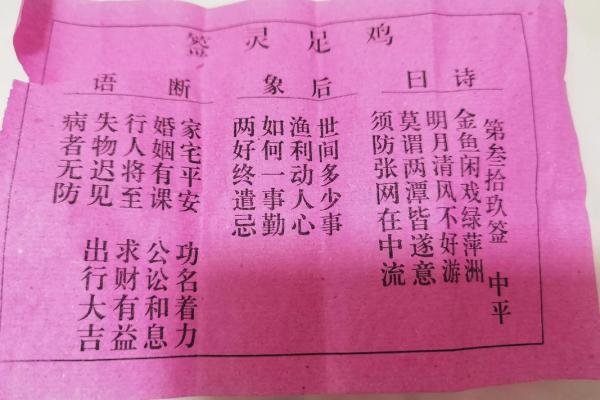 鸡足灵签
诗曰
第叁拾玖签 中平
金鱼闲戏绿萍洲
明月清风不好游
莫谓两潭皆遂意
须防张网在中流
后象
世间多少事
渔利动人心
如何一事勤
两好终遣忌
断语
家宅平安 功名着力
婚姻有课 公讼和息
行人将至 求财有益
失物迟见 出行大吉
病者无防